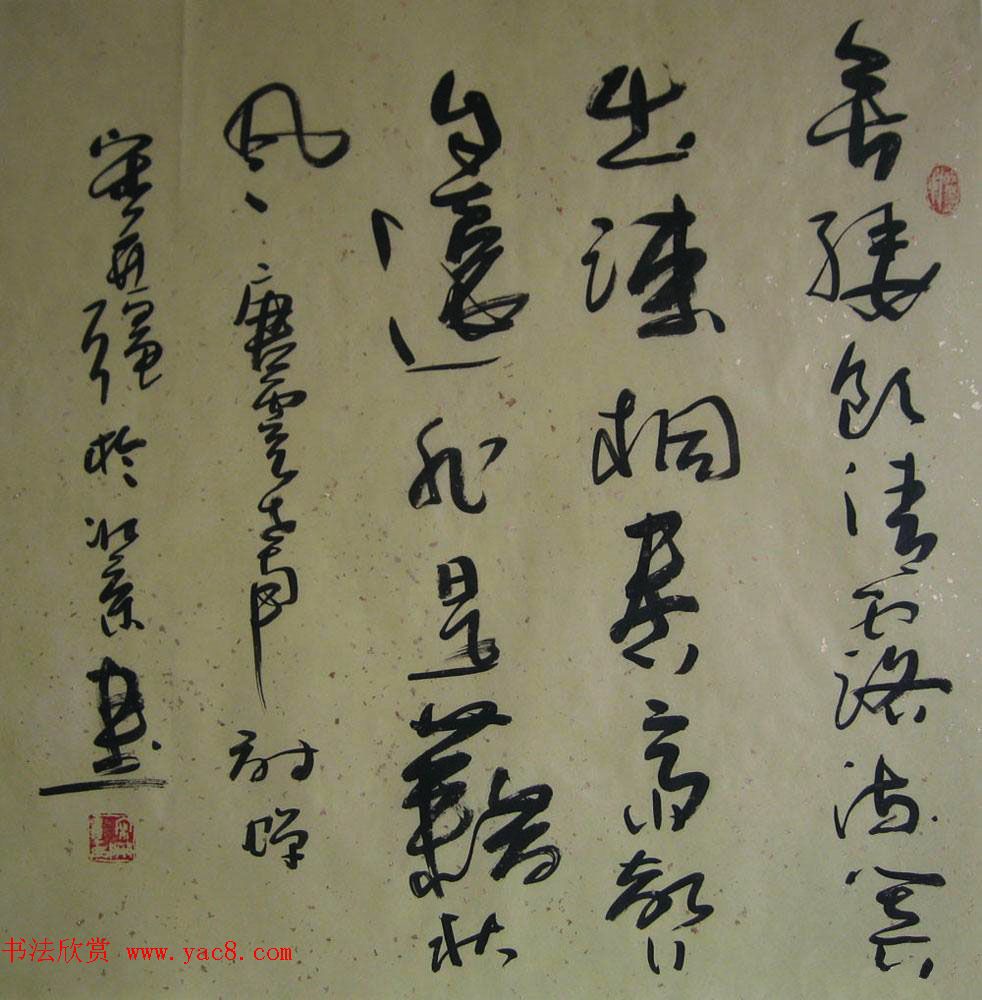 垂緌飲清露流響
出疎桐居高聲
自遠非是藉秋
风唐虞世南詩蟬
宋再强於北京書
书法欣赏 www.yac8.com